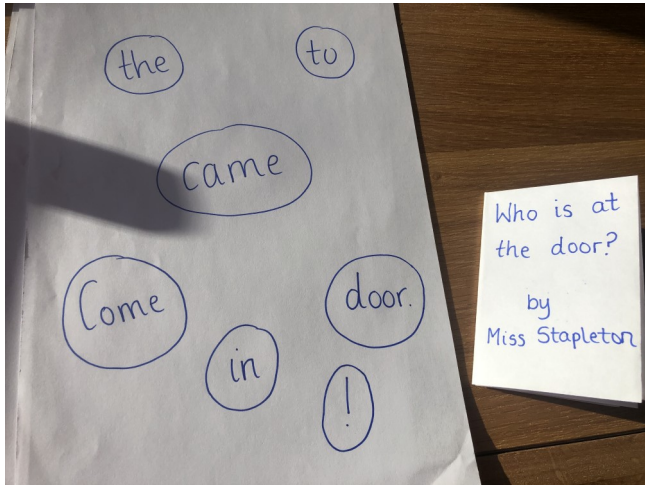 the to
came
Come door.
in !
Who is at
the door?
by
Miss Stapleton